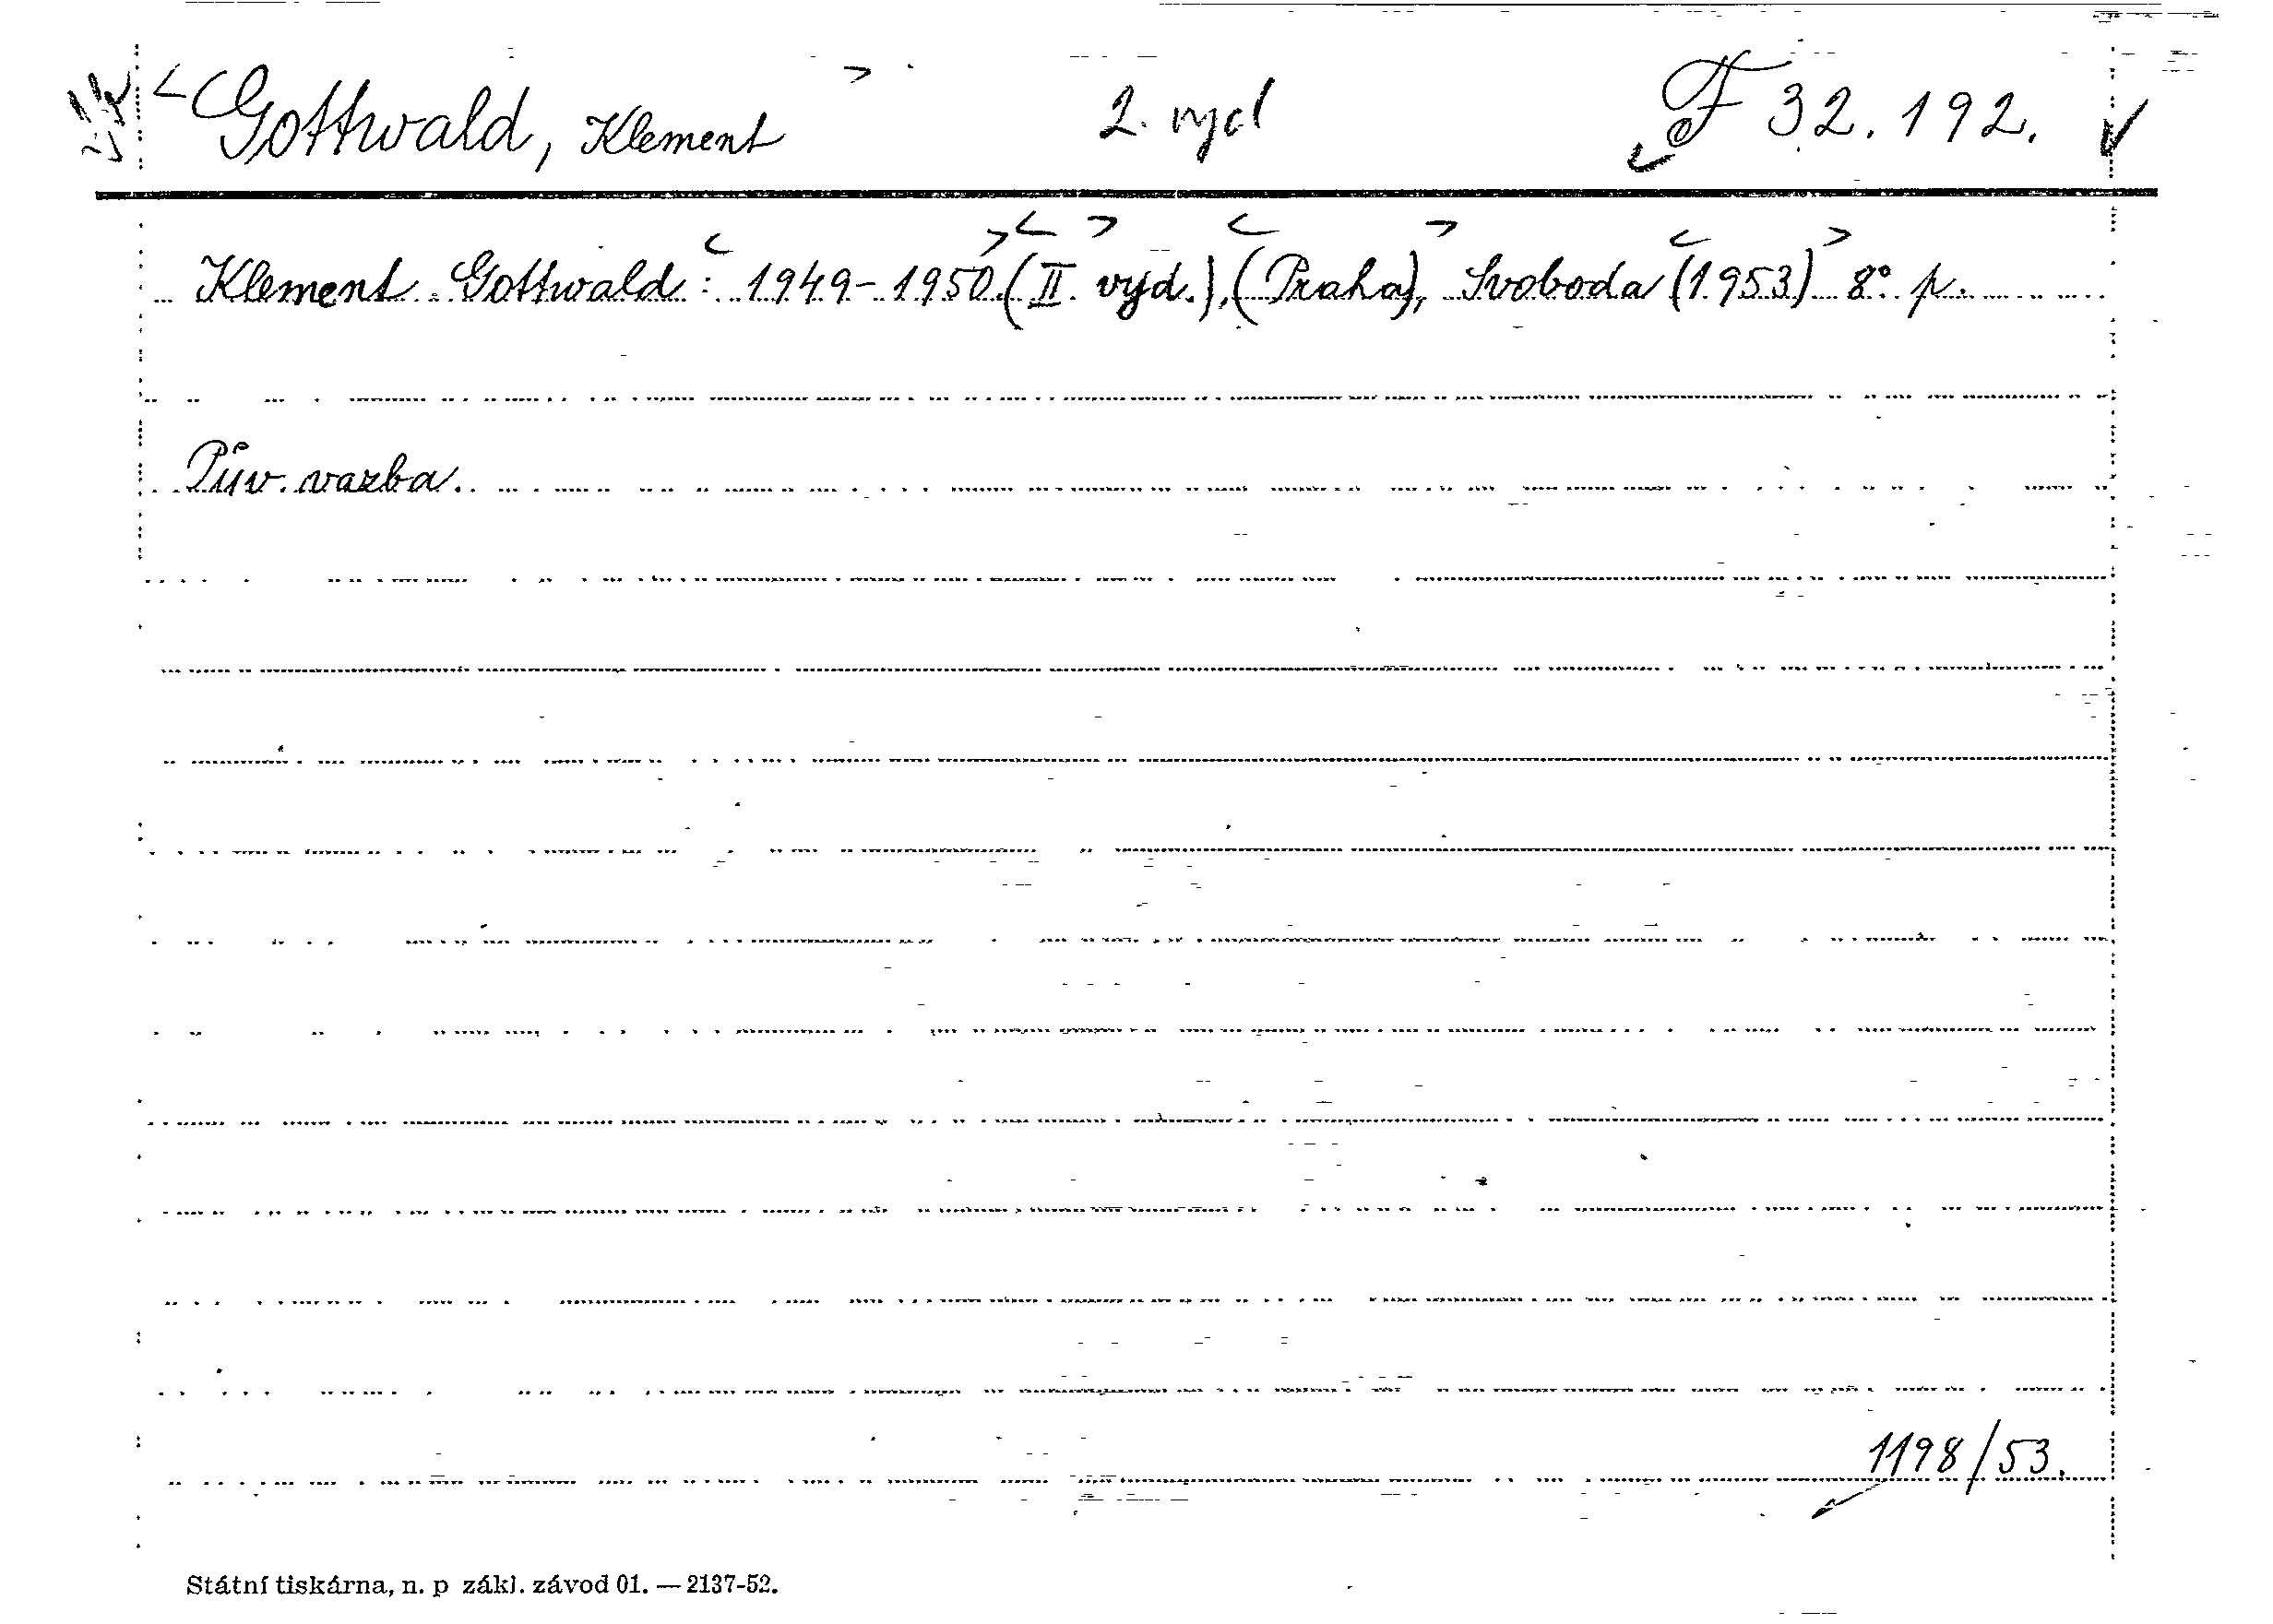 Gottwald, Klement 2. vyd F 32.192.
Klement Gottwald: 1949-1950 (II. vyd.), (Praha), Svoboda (1953) 8° p.
Pův. vazba.
1198/53.
Státní tiskárna, n. p zákl. závod 01. — 2137-52.